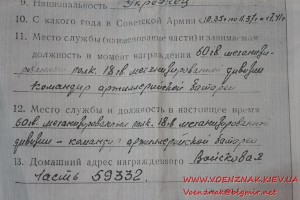 9. Национальность Украинец
10. С какого года в Советской Армии с 10.35г по 11.37г с 7.41г
11. Место службы (наименование части) и занимаемая
должность в момент награждения 60 гв. механизи-
рованный полк. 18 гв. механизированной дивизии
Командир артиллерийской батареи
12. Место службы и должность в настоящее время
60 гв. механизированный полк. 18 гв. механизированной
дивизии - командир артиллерийской батареи
13. Домашний адрес награжденного Войсковая
Часть 59332.
WWW.VOENZNAK.KIEV.UA
Voenznak@bigmir.net